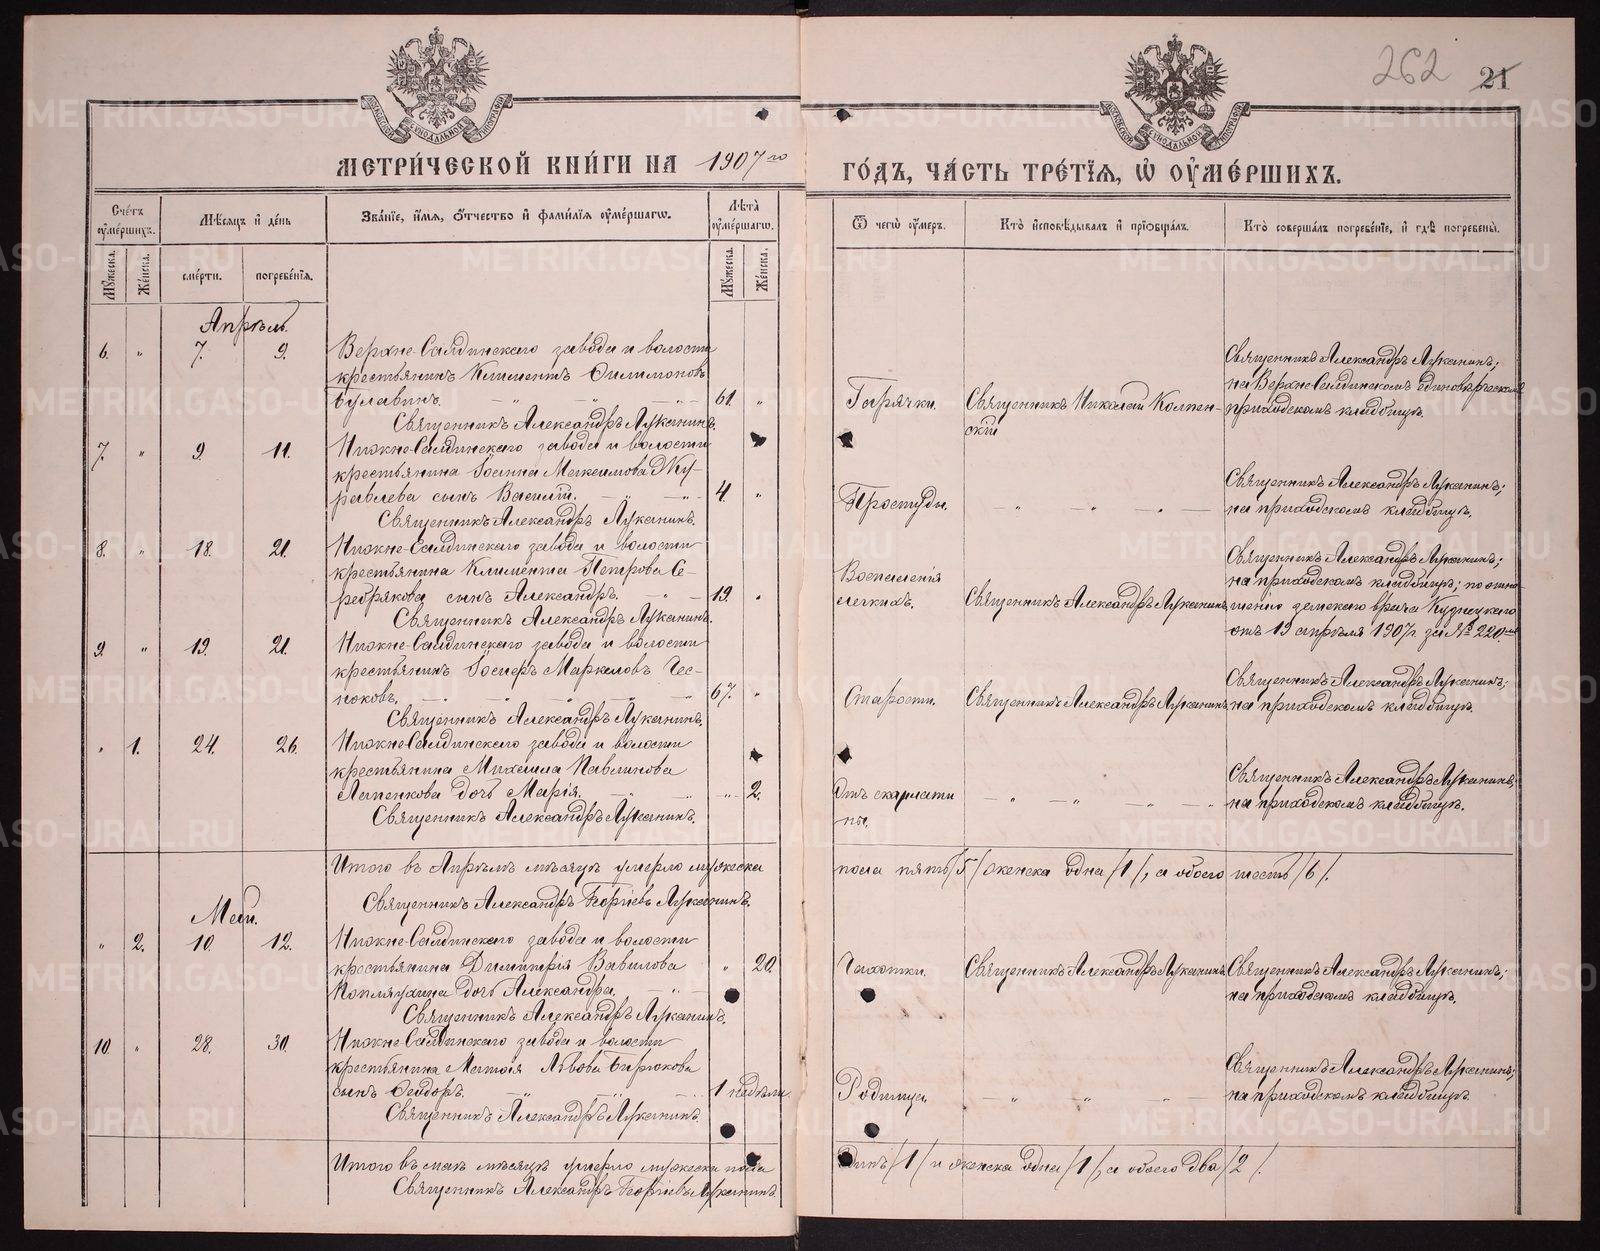 262 21
МЕТРИ́ЧЕСКОЙ КНИ́ГИ НА 1907 го ГО́ДЪ, ЧА́СТЬ ТРЕ́ТЇѦ, Ѽ ОУ҆МЕ́РШИХЪ.
Сче́тъ оумершихъ.
Мꙋжеска.
Же́нска.
Мѣсяцъ и де́нь
сме́рти.
погребе́нїя.
Зва́нїе, и҆мя, о҆тчество и҆ фами́лїя оу҆ме́ршагѡ.
Лѣта̀ оу҆ме́ршагѡ.
Мꙋжеска.
Же́нска.
Ѿ чегѡ̀ оу҆меръ.
Кто̀ и҆сповѣдывалъ и҆ прїѡбща́лъ.
Кто̀ соверша́лъ погребе́нїе, и҆ гдѣ̀ погребены̀.
Апрѣль.
6. " 7. 9.
Верхне-Салдинскаго завода и волости
крестьянинъ Климентъ Филимоновъ
Булавинъ. 61. "
Священникъ Александръ Луканинъ.
Горячки.
Священникъ Николай Колпен-
скій
Священникъ Александръ Луканинъ;
на Верхне-Салдинскомъ единовѣрческомъ
приходскомъ кладбищѣ.
7. " 9. 11.
Нижне-Салдинскаго завода и волости
крестьянина Іоанна Максимова Жу-
равлева сынъ Василій. 4. "
Священникъ Александръ Луканинъ.
Простуды.
Священникъ Александръ Луканинъ;
на приходскомъ кладбищѣ.
8. " 18. 21.
Нижне-Салдинскаго завода и волости
крестьянина Климента Петрова Се-
ребрякова сынъ Александръ. 19. "
Священникъ Александръ Луканинъ.
Воспаленія
легкихъ.
Священникъ Александръ Луканинъ
Священникъ Александръ Луканинъ;
на приходскомъ кладбищѣ; по отно-
шенію земскаго врача Кузнецкаго
отъ 19 апрѣля 1907 г за № 220.
9. " 19. 21.
Нижне-Салдинскаго завода и волости
крестьянинъ Іосифъ Маркеловъ Чес-
ноковъ. 67. "
Священникъ Александръ Луканинъ.
Старости.
Священникъ Александръ Луканинъ
Священникъ Александръ Луканинъ;
на приходскомъ кладбищѣ.
" 1. 24. 26.
Нижне-Салдинскаго завода и волости
крестьянина Михаила Павлинова
Лапенкова дочь Марія. " 2.
Священникъ Александръ Луканинъ.
Отъ скарлати
ны.
Священникъ Александръ Луканинъ;
на приходскомъ кладбищѣ.
Итого въ Апрѣлѣ мѣсяцѣ умерло мужеска пола пять /5/ женска одна /1/, а обоего шесть /6/.
Священникъ Александръ Георгіевъ Луканинъ.
Май.
" 2. 10. 12.
Нижне-Салдинскаго завода и волости
крестьянина Димитрія Вавилова
Коплягина дочь Александра. " 20.
Священникъ Александръ Луканинъ.
Чахотки.
Священникъ Александръ Луканинъ
Священникъ Александръ Луканинъ;
на приходскомъ кладбищѣ.
10. " 28. 30.
Нижне-Салдинскаго завода и волости
крестьянина Матѳія Львова Бирюкова
сынъ Ѳеодоръ. 1 недѣли
Священникъ Александръ Луканинъ.
Родимца.
Священникъ Александръ Луканинъ;
на приходскомъ кладбищѣ.
Итого въ маѣ мѣсяцѣ умерло мужеска пола одинъ /1/ и женска одна /1/, а обоего два /2/.
Священникъ Александръ Георгіевъ Луканинъ.